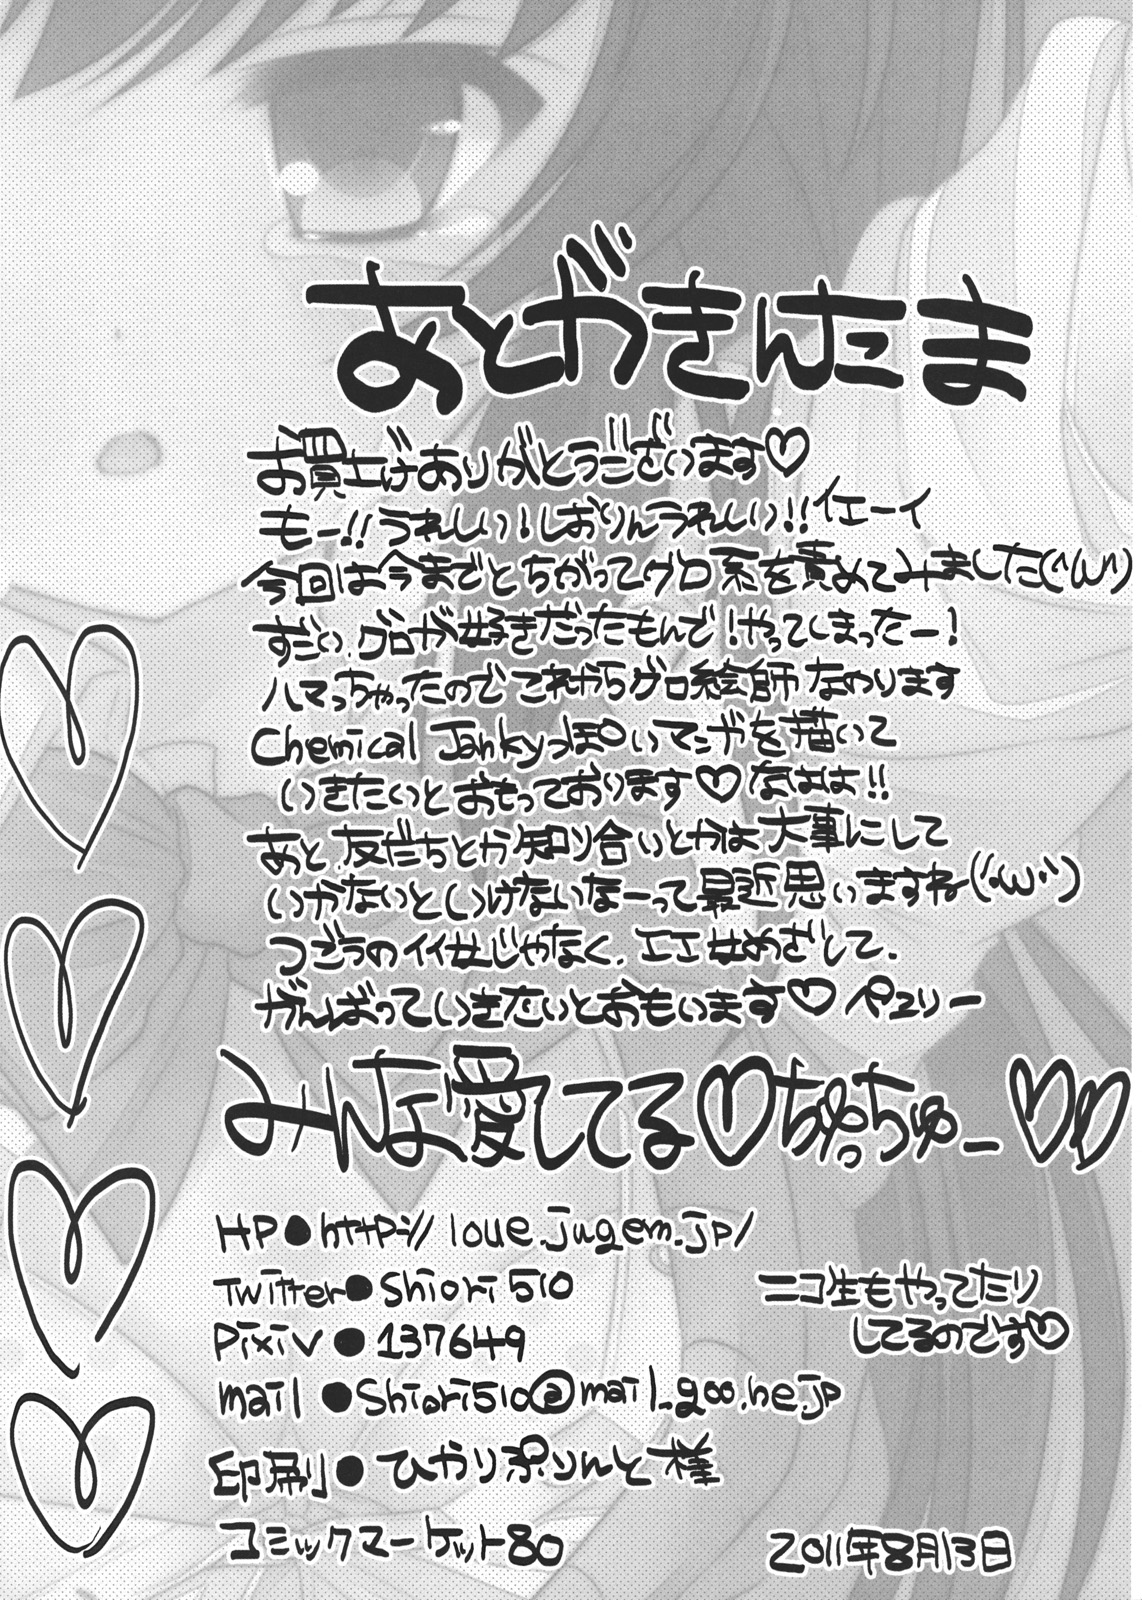 あとがきんたま
お買上げありがとうございます♡
もー!!うれしい!しおりんうれしい!!イエーイ
今回は今までとちがってグロ系を責めてみました(´・ω・`)
ずだい、グロが好きだったもんで!やってしまったー!
ハマっちゃったのでこれからグロ絵師なのります
Chemical Jankyっぽいマンガを描いて
いきたいとおもっております♡なはは!!
あと、友だちとか知り合いとかは大事にして
いかないといけないなーって最近思いますね(´・ω・`)
つごうのイイ女じゃなく、エエ女めざして、
がんばっていきたいとおもいます♡ペュリー
みんな愛してる♡ちゅっちゅー♡♡
HP●http://loue.jugem.jp/
Twitter●Shiori510
Pixiv●137649
ニコ生もやってたり
してるのです♡
mail●Shiori510@mail.goo.ne.jp
印刷●ひかりぷりんと様
コミックマーケット80
2011年8月13日